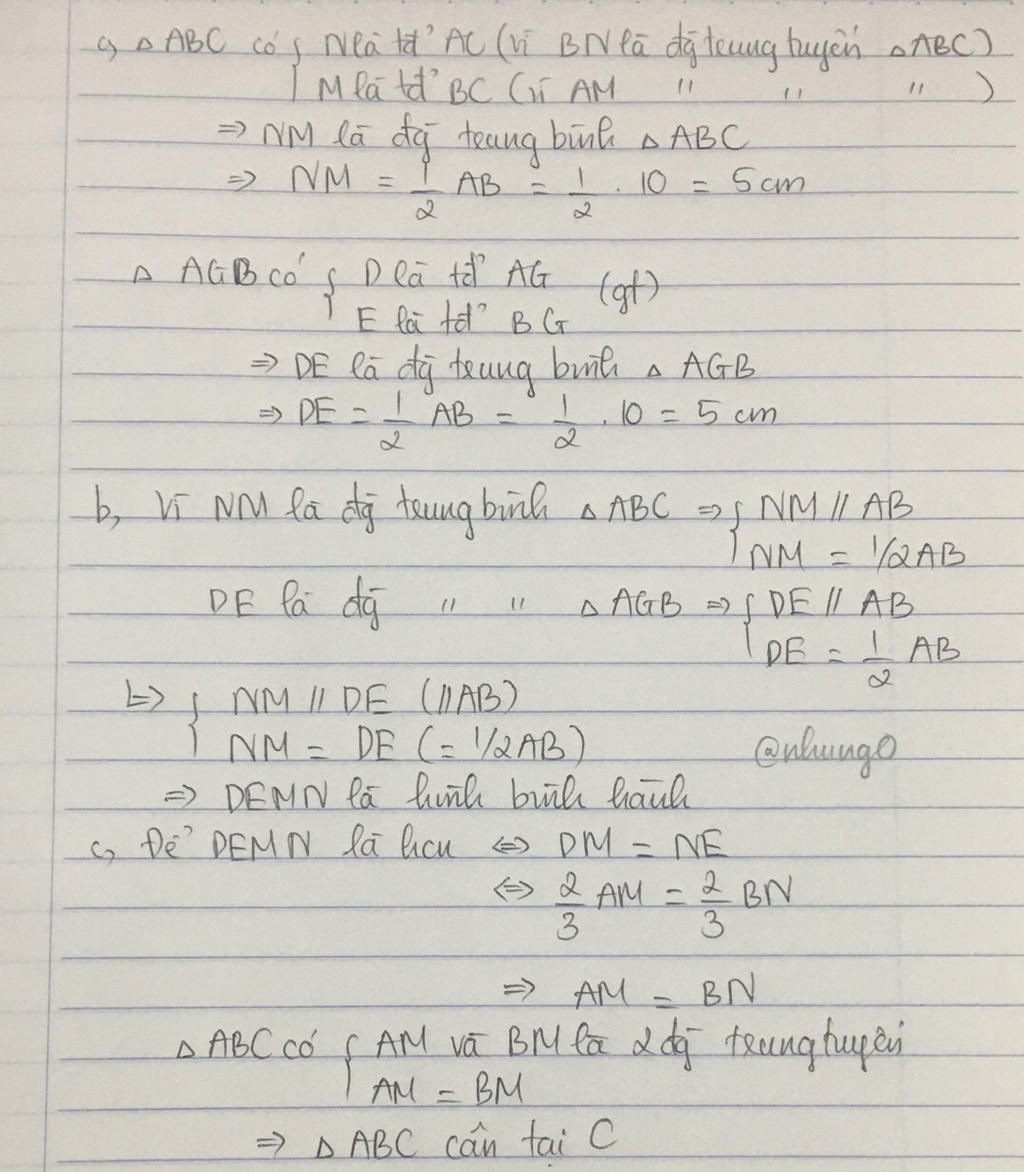 a, △ ABC có { N là tđ' AC (vì BN là đg̃ trung tuyến △ ABC)
M là tđ' BC (vì AM " " " )
=> NM là đg̃ trung bình △ ABC
=> NM = 1/2 AB = 1/2 . 10 = 5 cm
△ AGB có { D là tđ' AG (gt)
E là tđ' BG
=> DE là đg̃ trung bình △ AGB
=> DE = 1/2 AB = 1/2 . 10 = 5 cm
b, Vì NM là đg̃ trung bình △ ABC => { NM // AB
NM = 1/2AB
DE là đg̃ " " △ AGB => { DE // AB
DE = 1/2 AB
=> { NM // DE (//AB)
NM = DE (= 1/2AB)
@nhung0
=> DEMN là hình bình hành
c, Để DEMN là hcn <=> DM = NE
<=> 2/3 AM = 2/3 BN
=> AM = BN
△ ABC có { AM và BM là 2 đg̃ trung tuyến
AM = BM
=> △ ABC cân tại C